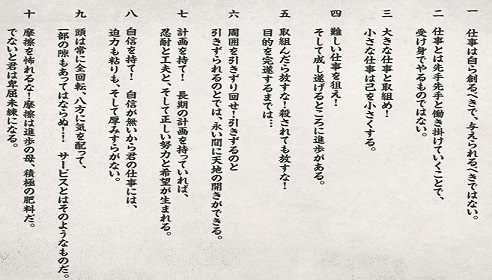 一　仕事は自ら創るべきで、与えられるべきではない。
二　仕事とは先手先手と働き掛けていくことで、
受け身でやるものではない。
三　大きな仕事と取組め！
小さな仕事は己を小さくする。
四　難しい仕事を狙え！
そして成し遂げるところに進歩がある。
五　取組んだら放すな！殺されても放すな！
目的を完遂するまでは…
六　周囲を引きずり回せ！引きずるのと
引きずられるのとでは、永い間に天地の開きができる。
七　計画を持て！　長期の計画を持っていれば、
忍耐と工夫と、そして正しい努力と希望が生まれる。
八　自信を持て！　自信が無いから君の仕事には、
迫力も粘りも、そして厚みすらがない。
九　頭は常に全回転、八方に気を配って、
一部の隙もあってはならぬ！！　サービスとはそのようなものだ。
十　摩擦を怖れるな！摩擦は進歩の母、積極の肥料だ。
でないと君は卑屈未練になる。